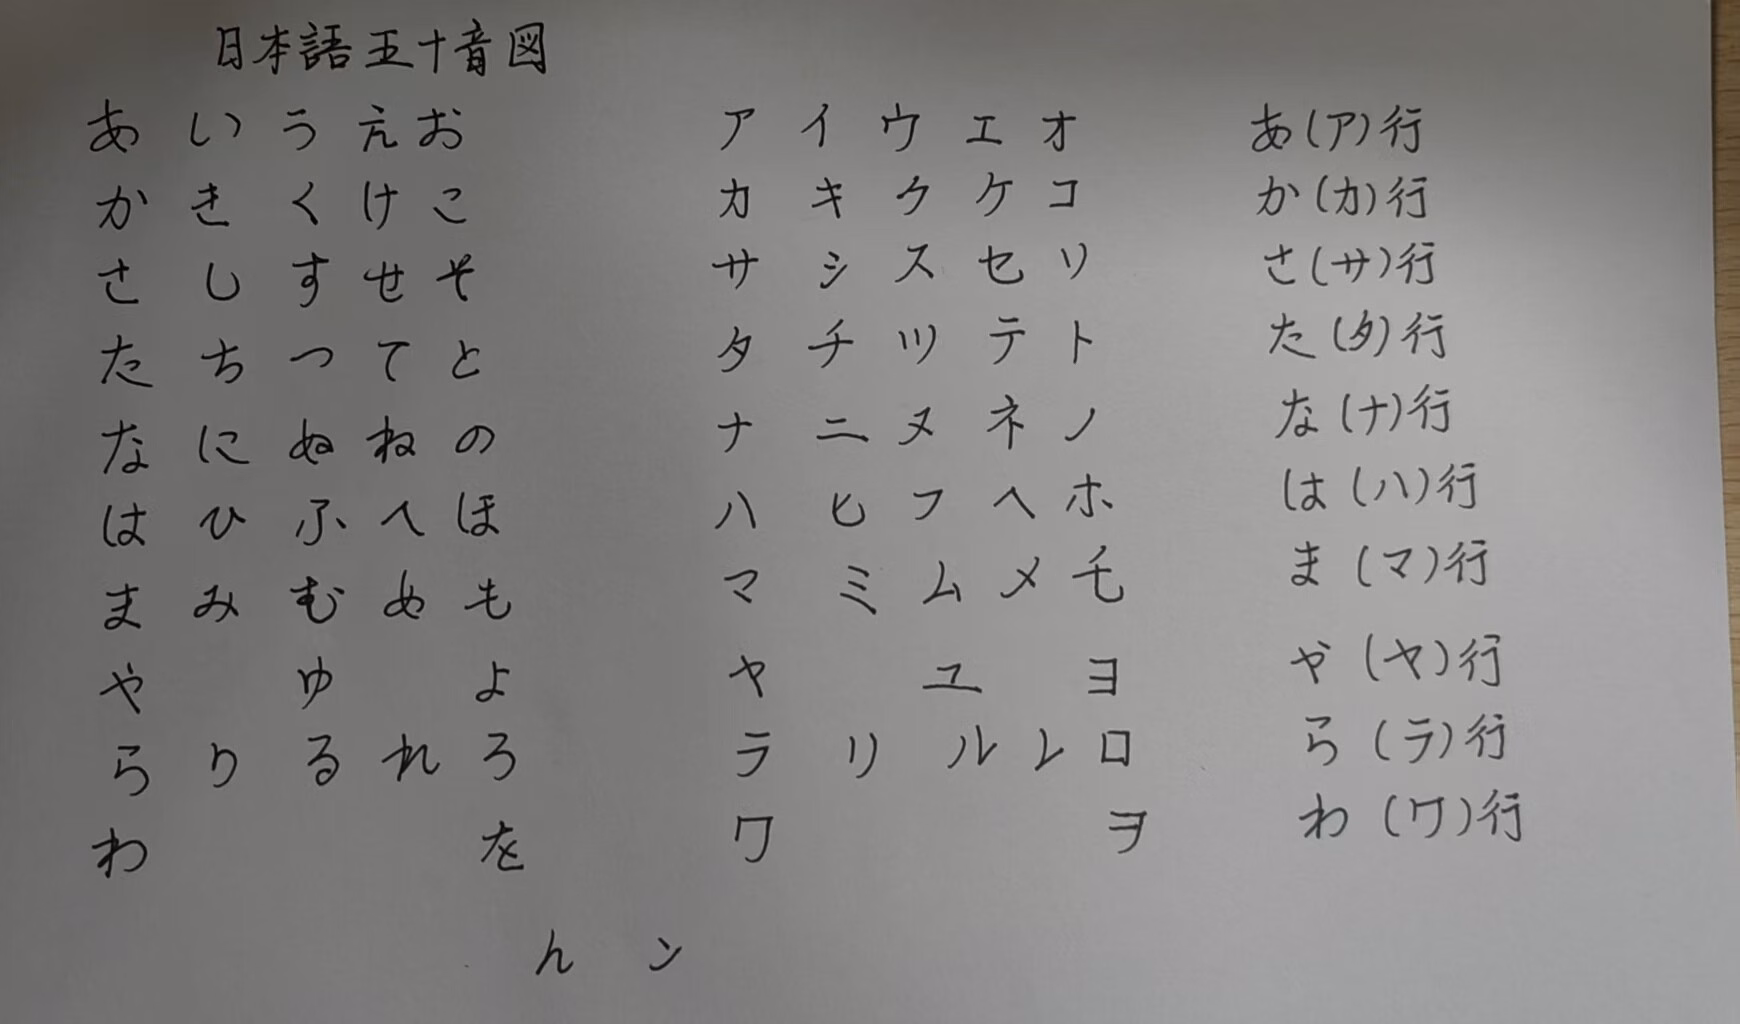 日本語五十音図
あ い う え お ア イ ウ エ オ あ(ア)行
か き く け こ カ キ ク ケ コ か(カ)行
さ し す せ そ サ シ ス セ ソ さ(サ)行
た ち つ て と タ チ ツ テ ト た(タ)行
な に ぬ ね の ナ ニ ヌ ネ ノ な(ナ)行
は ひ ふ へ ほ ハ ヒ フ ヘ ホ は(ハ)行
ま み む め も マ ミ ム メ モ ま(マ)行
や ゆ よ ヤ ユ ヨ や(ヤ)行
ら り る れ ろ ラ リ ル レ ロ ら(ラ)行
わ を ワ ヲ わ(ワ)行
ん ン